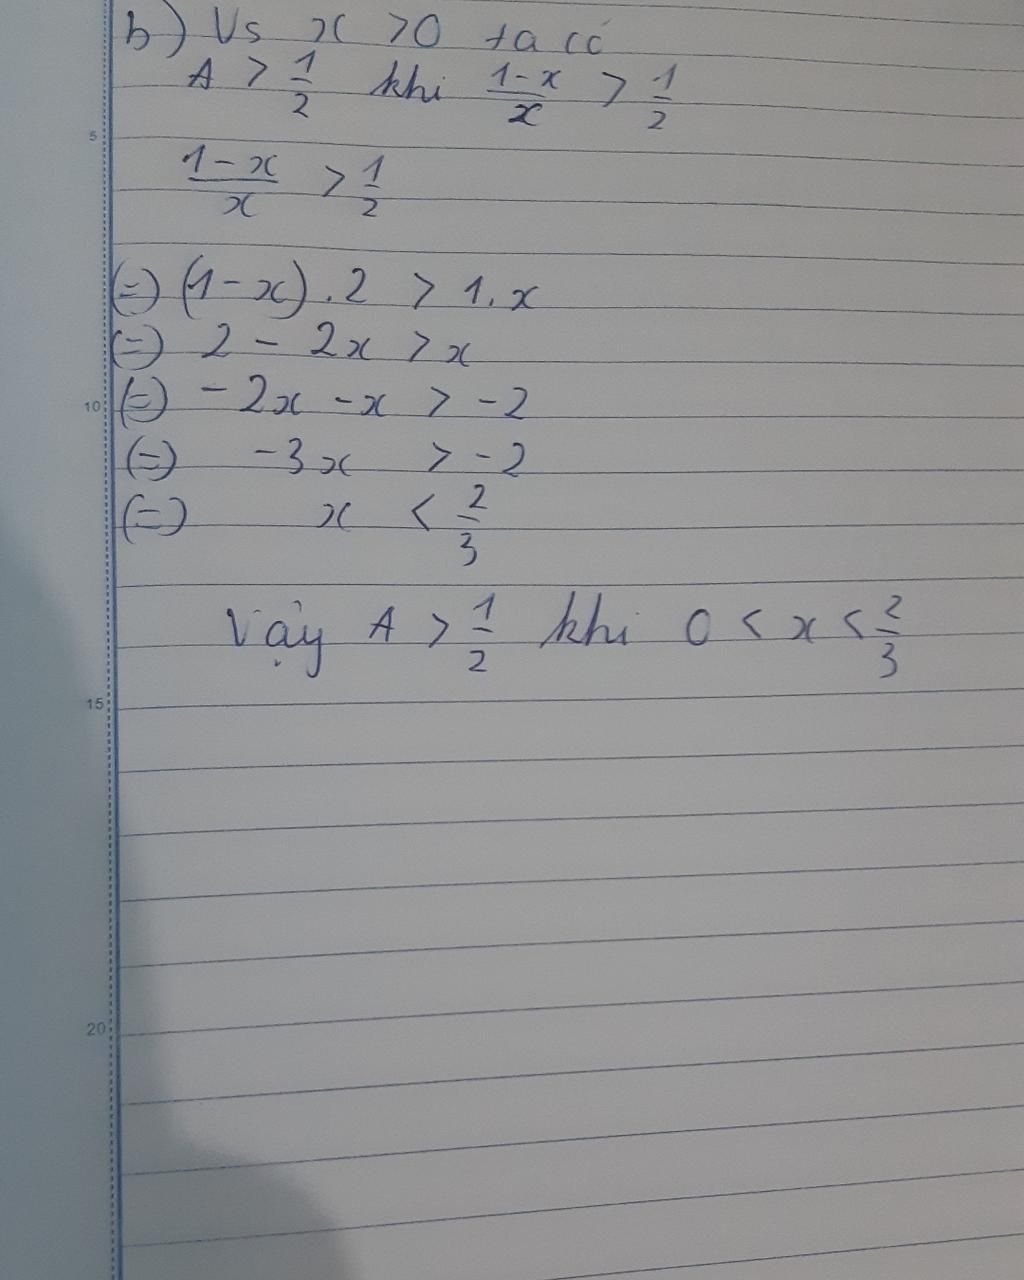 b) Vs x > 0 ta có
A > 1/2 khi (1-x)/x > 1/2
5
(1-x)/x > 1/2
(=) (1-x).2 > 1.x
(=) 2 - 2x > x
10 (=) -2x -x > -2
(=) -3x > -2
(=) x < 2/3
Vậy A > 1/2 khi 0 < x < 2/3
15
20